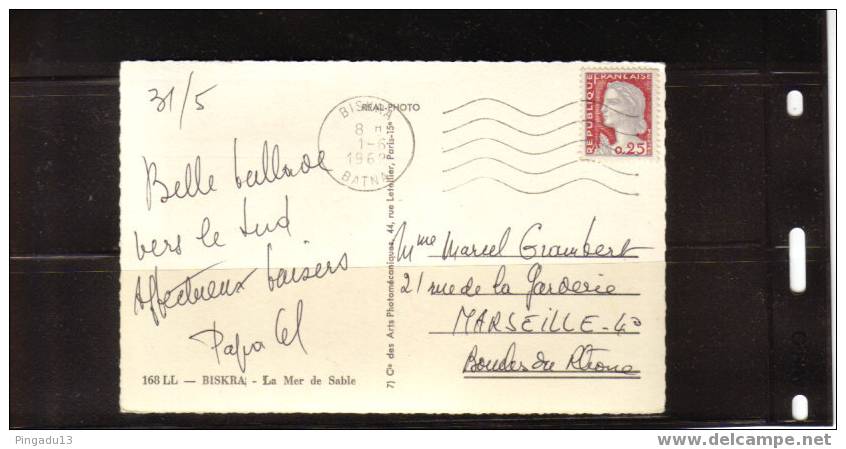 31/5
Belle ballade
vers le sud
Affectueux baisers
Papa
168 LL — BISKRA. - La Mer de Sable
REAL-PHOTO
7) Cie des Arts Photomécaniques, 44, rue Letellier, Paris-15e
BISKRA
8 H
1-6
196
BATNA
REPUBLIQUE FRANÇAISE
0.25
Mme Marcel Grambert
21 rue de la Garderie
MARSEILLE-4e
Bouches du Rhône
Pingadu13
www.delcampe.net